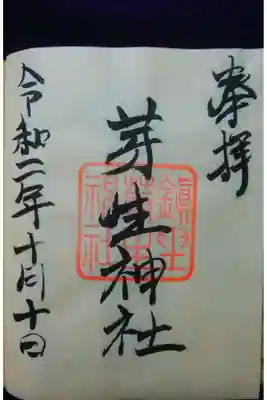 奉拝
芽生神社
令和二年十月十日